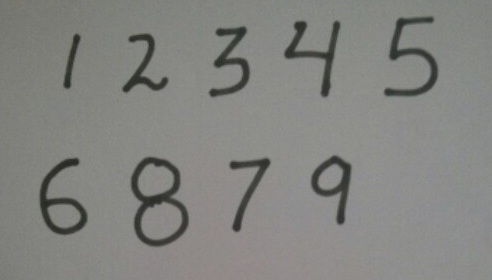 1 2 3 4 5
6 8 7 9